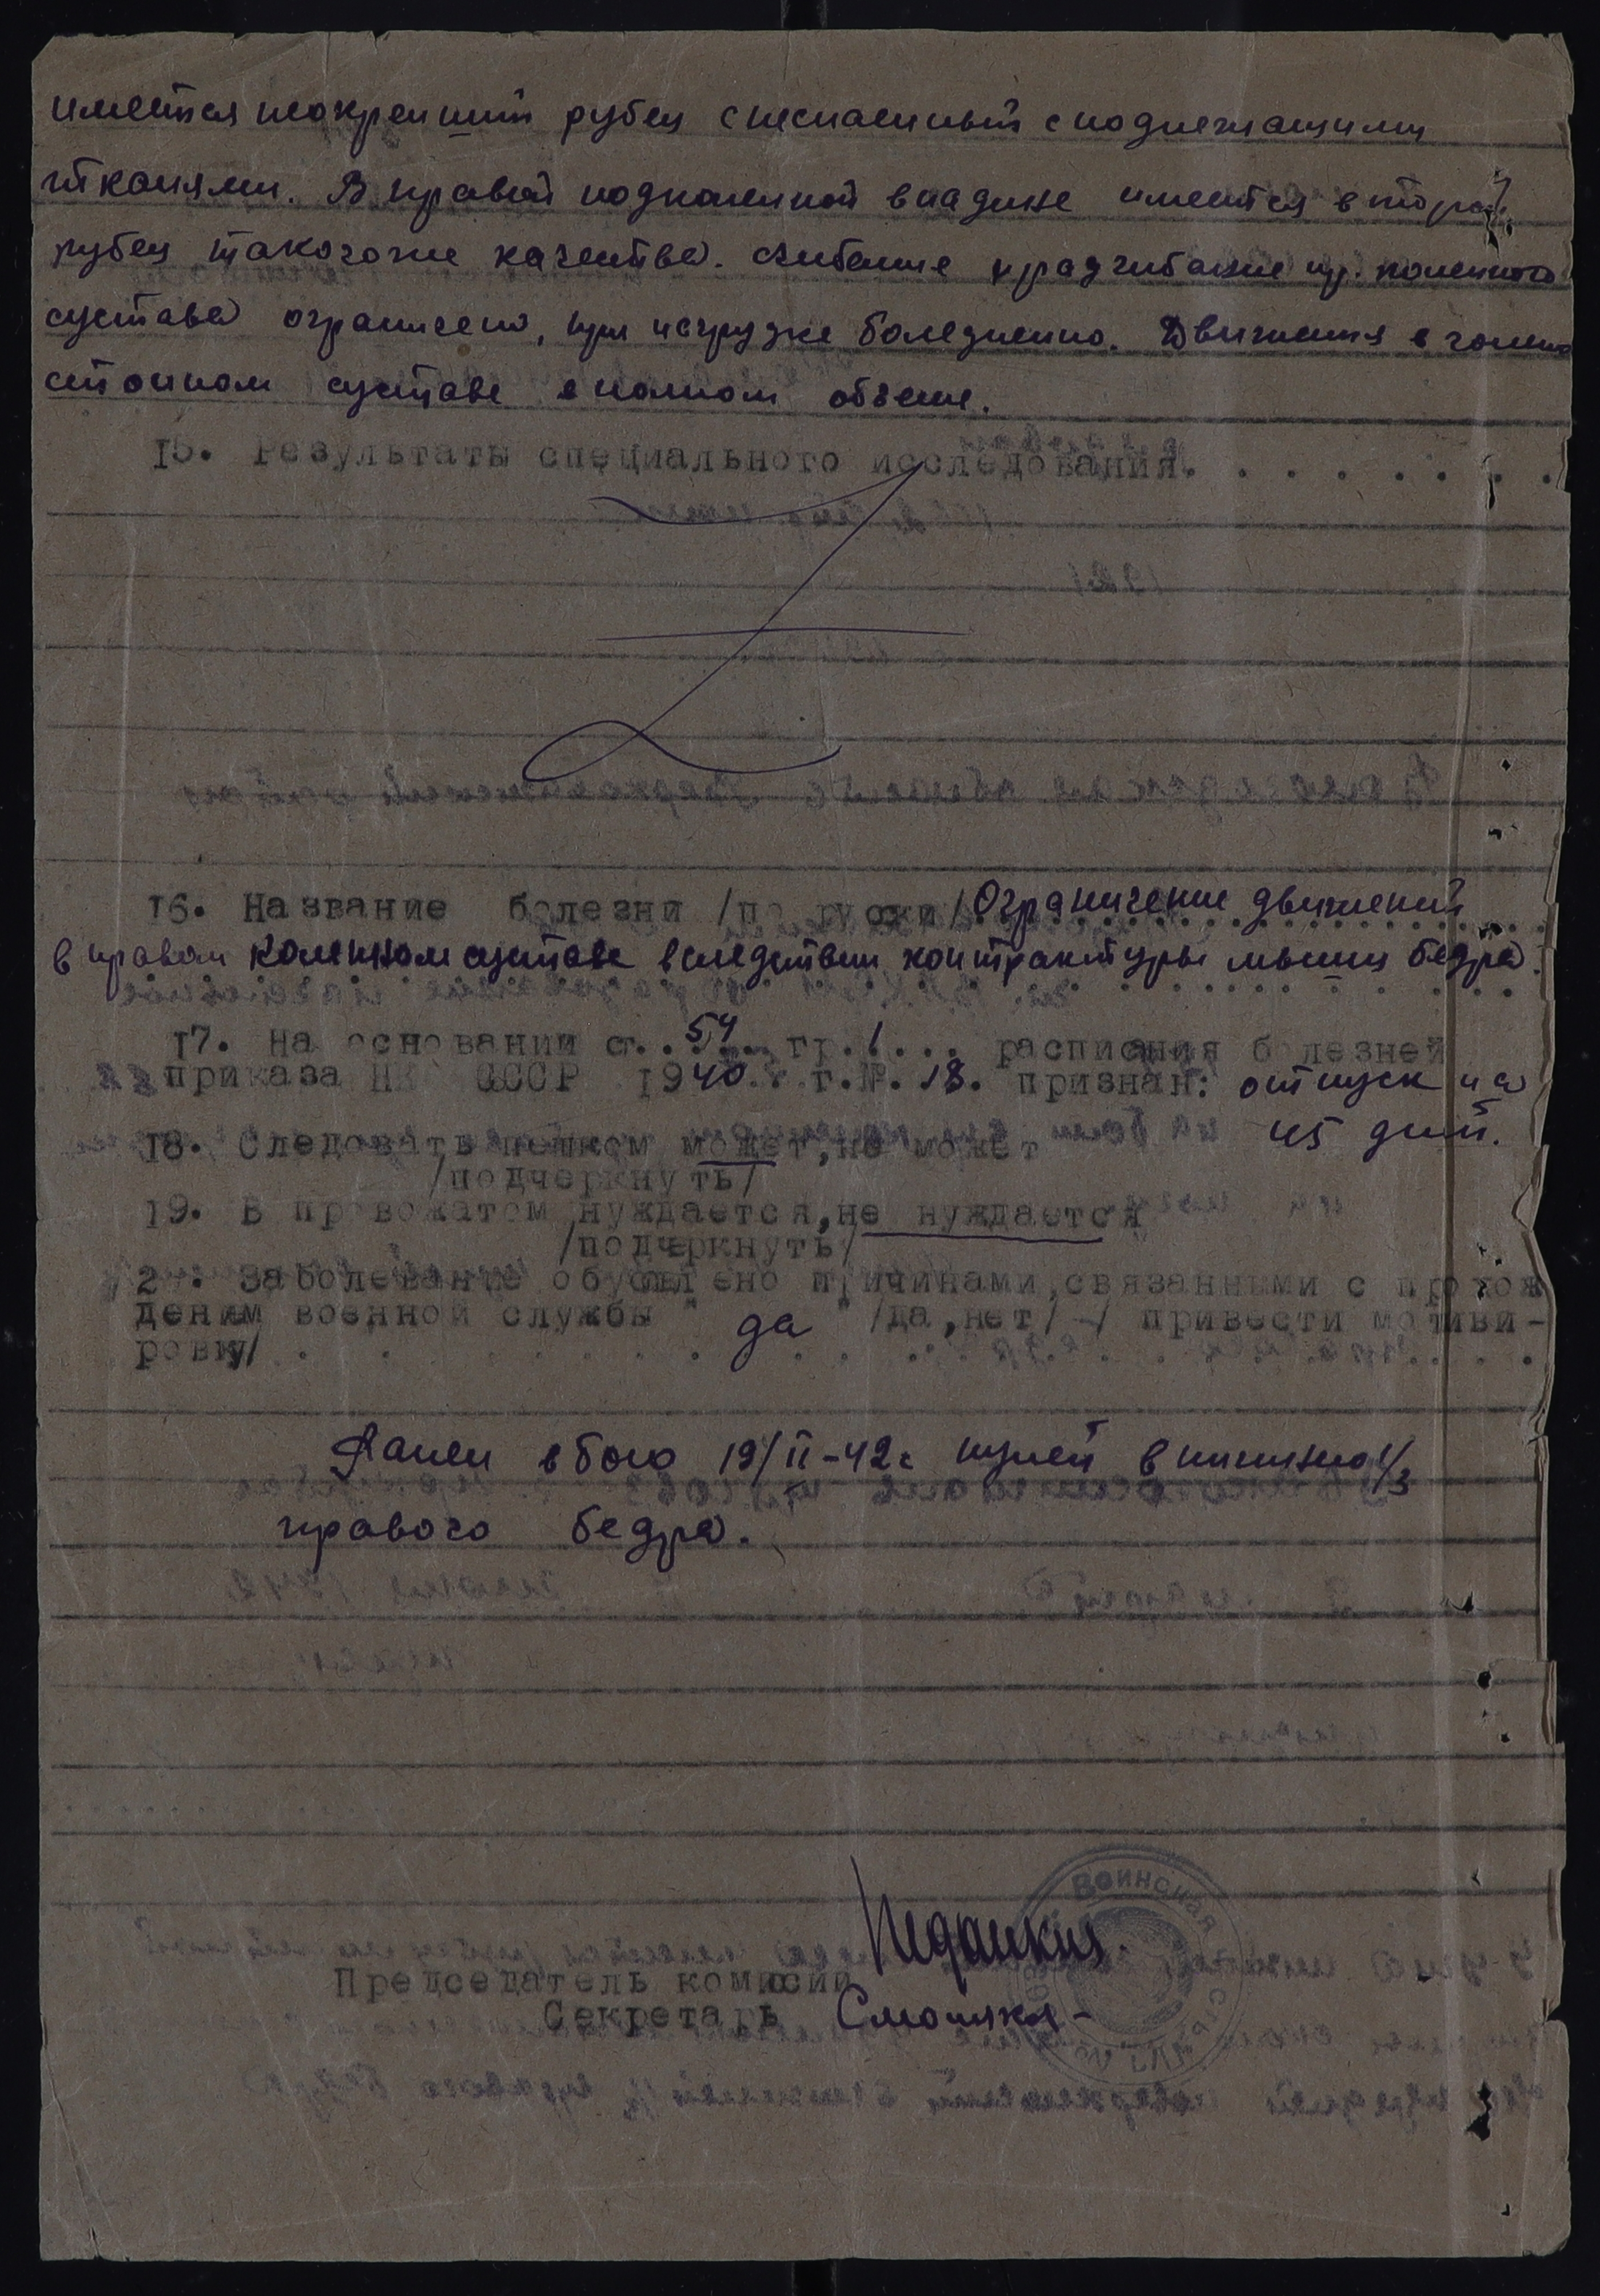 имеется неокрепший рубец с неспаенный с подлежащими
тканями. В правой подколенной впадине имеется второй
рубец такого же качества. Сгибание и разгибание пр. коленного
сустава ограничено, при нагрузке болезненно. Движения в голено
стопном суставе в полном объеме.
15. Результаты специального исследования. . . . . . . .
16. Название болезни /по русски/ Ограничение движений
в правом коленном суставе вследствии контрактуры мышц бедра.
17. На основании ст. 54 гр. 1 . . . расписания болезней
приказа НК СССР 1940 г. №. 18. признан: отпуск на
45 дней.
18. Следовать пешком может, не может
/подчеркнуть/
19. В провожатом нуждается, не нуждается
/подчеркнуть/
2 . Заболевание обусловлено причинами, связанными с прохож
дением военной службы " да " /да, нет/ -/ привести мотиви-
ровку/ . . . . . . . . . . . .
Ранен в бою 19/II-42г. пулей в нижнюю 1/3
правого бедра.
Воинская
Председатель комиссии
Секретарь